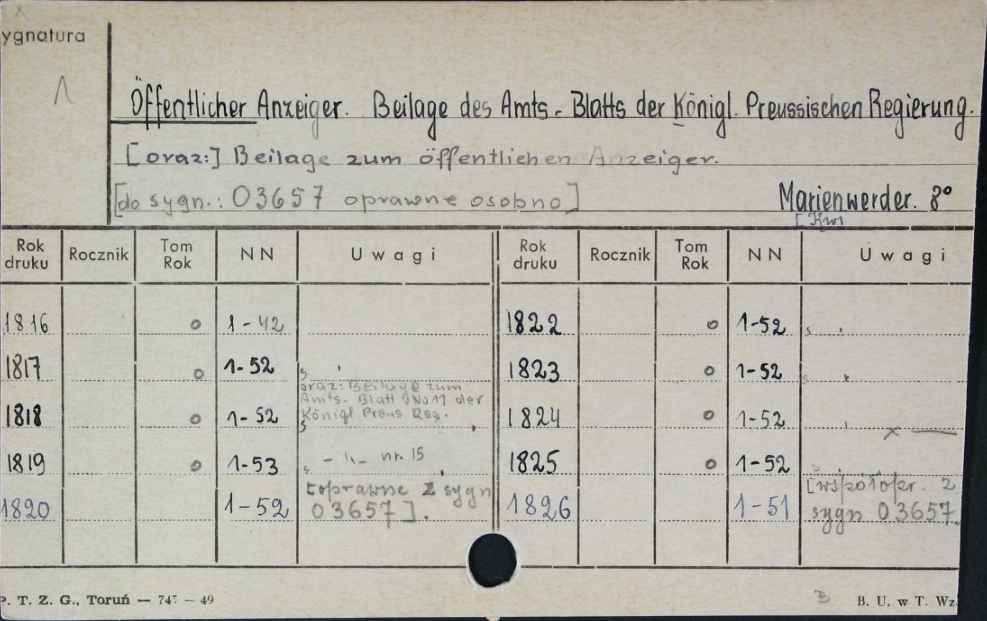 ygnatura
1
Öffentlicher Anzeiger. Beilage des Amts-Blatts der Königl. Preussischen Regierung.
[oraz:] Beilage zum öffentlichen Anzeiger.
[do sygn.: 03657 oprawne osobno] Marienwerder. 8°
[Kw]
Rok druku Rocznik Tom Rok NN Uwagi Rok druku Rocznik Tom Rok NN Uwagi
1816 o 1-42 1822 o 1-52
1817 o 1-52 1823 o 1-52
oraz: Beilage zum
Amts-Blatt No 17 der
1818 o 1-52 Königl Preus Reg. 1824 o 1-52 x —
1819 o 1-53 - " - nr. 15 1825 o 1-52
[oprawne z sygn [współopr. z
1820 1-52 03657]. 1826 1-51 sygn 03657
P. T. Z. G., Toruń — 747 — 49 B. U. w T. Wz